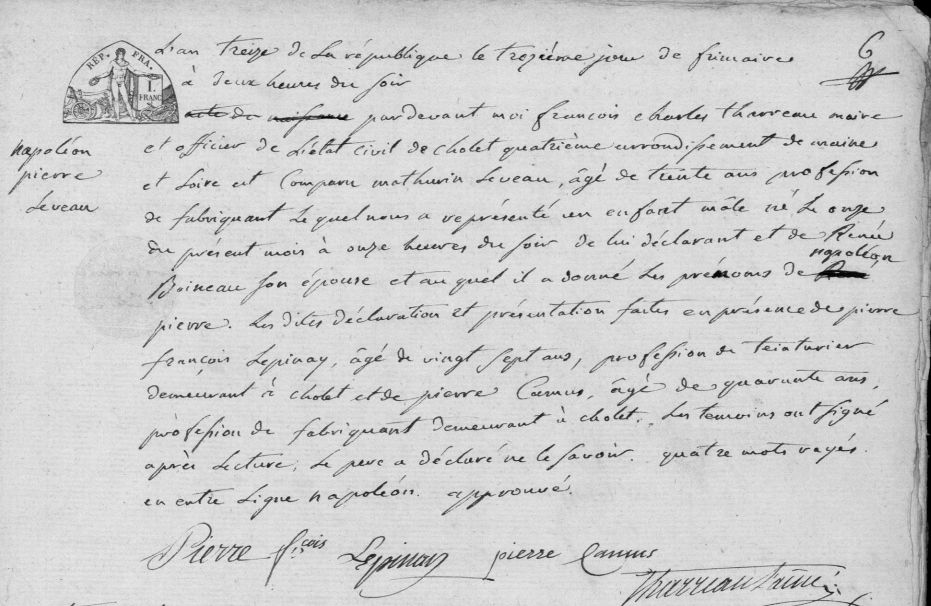 L'an treize de la république le trozième jour de frimaire
6
à deux heures du soir
REP. FRA.
1. FRANC
acte de naissance par devant moi françois charles tharreau maire
et officier de l'état civil de cholet quatrième arrondissement de maine
napoléon
pierre
Leveau
et Loire est Comparu mathurin Leveau, âgé de trente ans profession
de fabriquant Le quel nous a représenté un enfant mâle né Le onze
du présent mois à onze heures du soir de lui déclarant et de Renée
napoléon
Boineau son épouse et au quel il a donné Les prénoms de
pierre. Les dites déclaration et présentation faites en présence de pierre
françois Lepinay, âgé de vingt sept ans, profession de teinturier
demeurant à cholet et de pierre Camus, âgé de quarante ans,
profession de fabriquant demeurant à cholet. Les temoins ont signé
après Lecture, Le pere a déclaré ne le savoir. quatre mots rayés.
en entre Ligne napoléon. approuvé.
Pierre f.cois Lepinay pierre Camus
Tharreau l'ainé